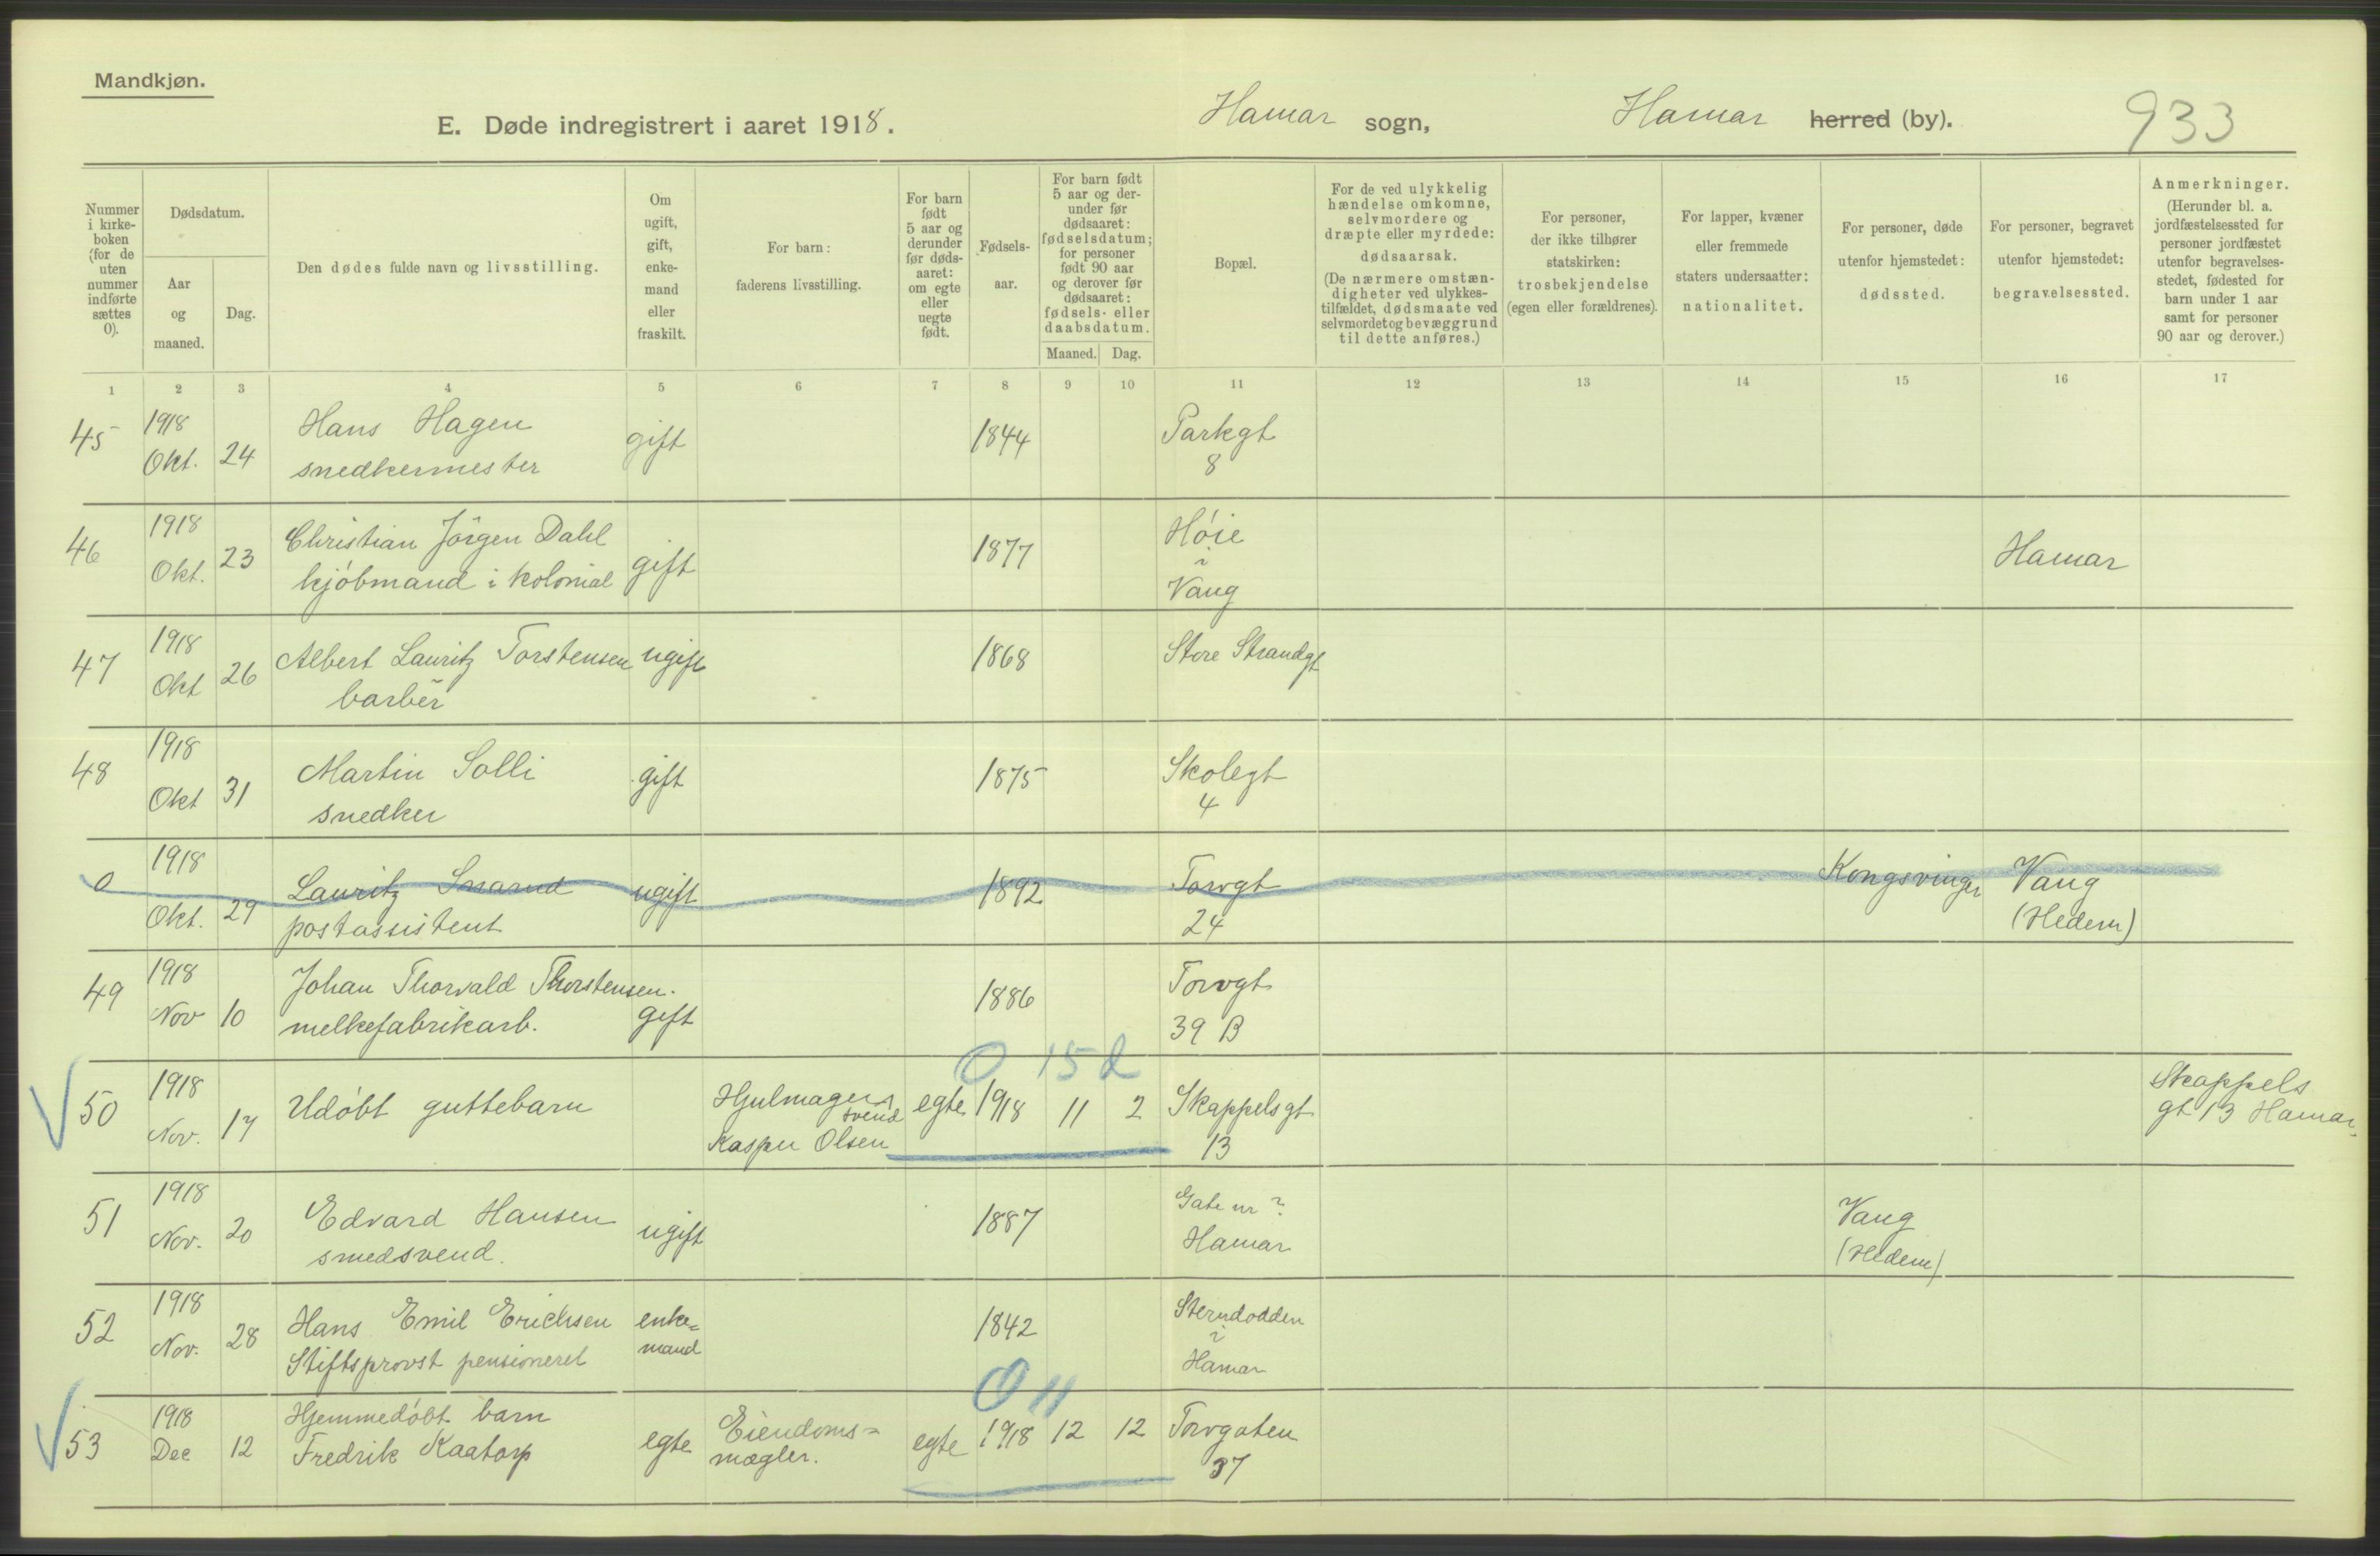 Mandkjøn.
E. Døde indregistrert i aaret 1918.
Hamar sogn,
Hamar herred (by).
933
Nummer i kirkeboken (for de uten nummer indførte sættes 0).
Dødsdatum.
Aar og maaned.
Dag.
Den dødes fulde navn og livsstilling.
Om ugift, gift, enkemand eller fraskilt.
For barn: faderens livsstilling.
For barn født 5 aar og derunder før dødsaaret: om egte eller uegte født.
Fødselsaar.
For barn født 5 aar og derunder før dødsaaret: fødselsdatum; for personer født 90 aar og derover før dødsaaret: fødsels- eller daabsdatum.
Maaned. Dag.
Bopæl.
For de ved ulykkelig hændelse omkomne, selvmordere og dræpte eller myrdede: dødsaarsak.
(De nærmere omstændigheter ved ulykkestilfældet, dødsmaate ved selvmordet og bevæggrund til dette anføres.)
For personer, der ikke tilhører statskirken: trosbekjendelse (egen eller forældrenes).
For lapper, kvæner eller fremmede staters undersaatter: nationalitet.
For personer, døde utenfor hjemstedet: dødssted.
For personer, begravet utenfor hjemstedet: begravelsessted.
Anmerkninger.
(Herunder bl. a. jordfæstelsessted for personer jordfæstet utenfor begravelsesstedet, fødested for barn under 1 aar samt for personer 90 aar og derover.)
1 2 3 4 5 6 7 8 9 10 11 12 13 14 15 16 17
45 1918 Okt. 24 Hans Hagen snedkermester gift 1844 Parkgt 8
46 1918 Okt. 23 Christian Jörgen Dahl kjóbmand i kolonial gift 1877 Hóie i Vang Hamar
47 1918 Okt 26 Albert Lauritz Torstensen barbér ugift 1868 Store Strandgt
48 1918 Okt 31 Martin Solli snedker gift 1875 Skolegt 4
0 1918 Okt. 29 Lauritz postassistent ugift 1892 Torvgt 24 Kongsvinger Vang (Hedem)
49 1918 Nov 10 Johan Thorvald Thorstensen. melkefabrikarb. gift 1886 Torvgt 39 B
0 15 d
50 1918 Nov. 17 Udóbt guttebarn Hjulmager svend Kasper Olsen egte 1918 11 2 Skappelsgt 13 Skappels gt 13 Hamar.
51 1918 Nov. 20 Edvard Hansen smedsvend. ugift 1887 Gate nr ? Hamar Vang (Hedem)
52 1918 Nov. 28 Hans Emil Erichsen Stiftsprovst pensioneret enke= mand 1842 i Hamar
0 11
53 1918 Dec 12 Hjemmedóbt barn Fredrik Kaatorp egte Eiendoms= mægler. egte 1918 12 12 Torvgaten 37